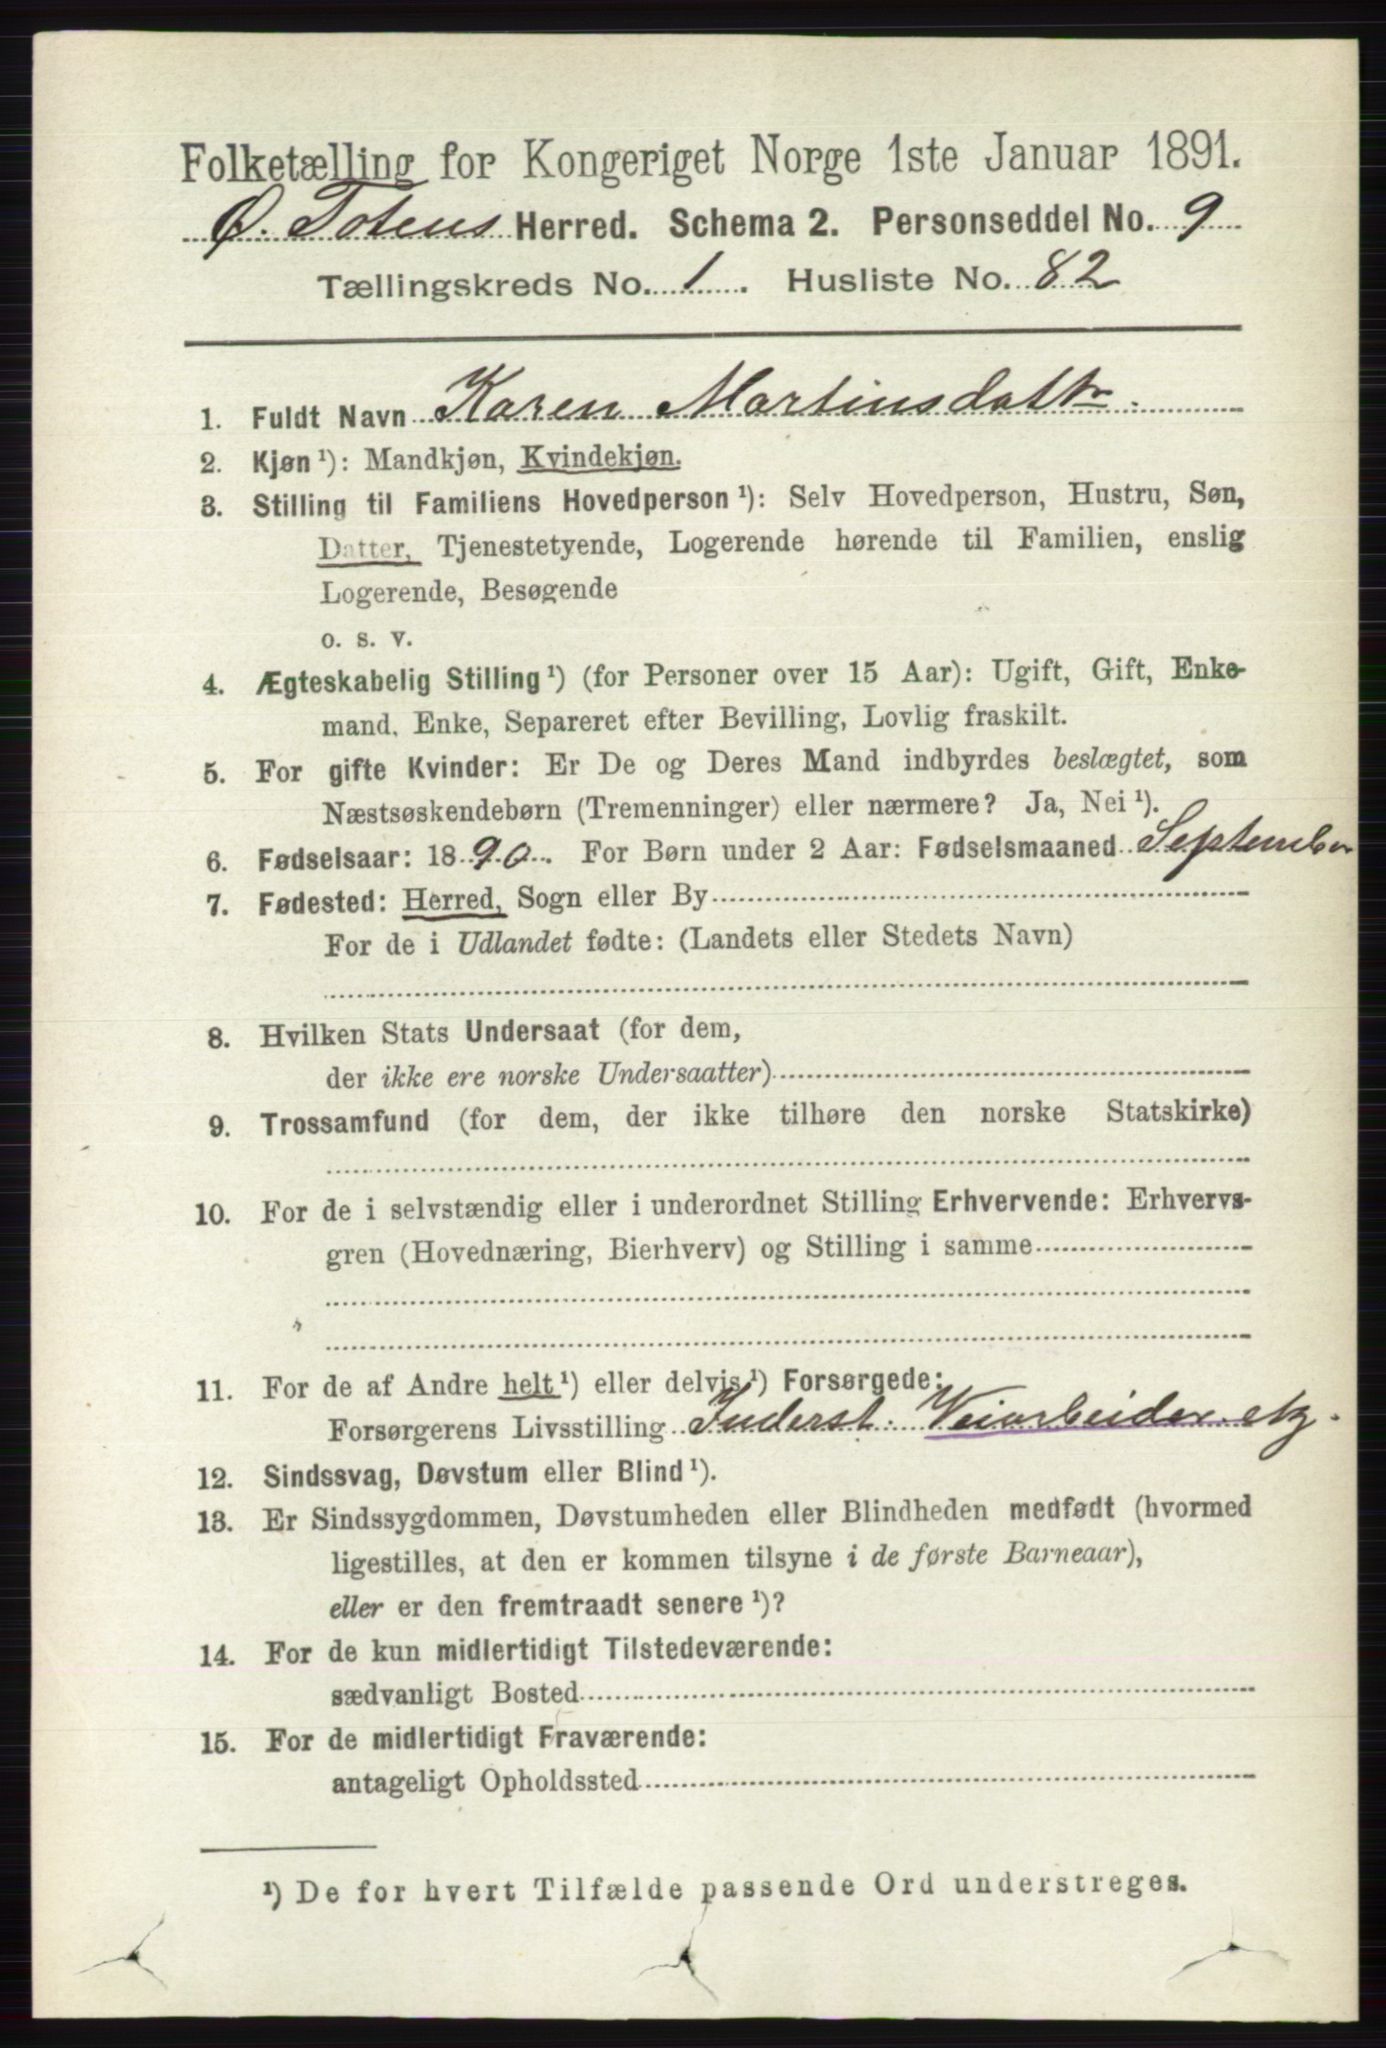 Folketælling for Kongeriget Norge 1ste Januar 1891.
Ø. Totens Herred. Schema 2. Personseddel No. 9
Tællingskreds No. 1. Husliste No. 82
1. Fuldt Navn Karen Martinsdatter
2. Kjøn¹): Mandkjøn, Kvindekjøn.
3. Stilling til Familiens Hovedperson¹): Selv Hovedperson, Hustru, Søn,
Datter, Tjenestetyende, Logerende hørende til Familien, enslig
Logerende, Besøgende
o. s. v.
4. Ægteskabelig Stilling¹) (for Personer over 15 Aar): Ugift, Gift, Enke-
mand, Enke, Separeret efter Bevilling, Lovlig fraskilt.
5. For gifte Kvinder: Er De og Deres Mand indbyrdes beslægtet, som
Næstsøskendebørn (Tremenninger) eller nærmere? Ja, Nei¹).
6. Fødselsaar: 1890. For Børn under 2 Aar: Fødselsmaaned September
7. Fødested: Herred, Sogn eller By
For de i Udlandet fødte: (Landets eller Stedets Navn)
8. Hvilken Stats Undersaat (for dem,
der ikke ere norske Undersaatter)
9. Trossamfund (for dem, der ikke tilhøre den norske Statskirke)
10. For de i selvstændig eller i underordnet Stilling Erhvervende: Erhvervs-
gren (Hovednæring, Bierhverv) og Stilling i samme
11. For de af Andre helt¹) eller delvis¹) Forsørgede:
Forsørgerens Livsstilling Inderst. Veiarbeider
12. Sindssvag, Døvstum eller Blind¹).
13. Er Sindssygdommen, Døvstumheden eller Blindheden medfødt (hvormed
ligestilles, at den er kommen tilsyne i de første Barneaar),
eller er den fremtraadt senere¹)?
14. For de kun midlertidigt Tilstedeværende:
sædvanligt Bosted
15. For de midlertidigt Fraværende:
antageligt Opholdssted
¹) De for hvert Tilfælde passende Ord understreges.